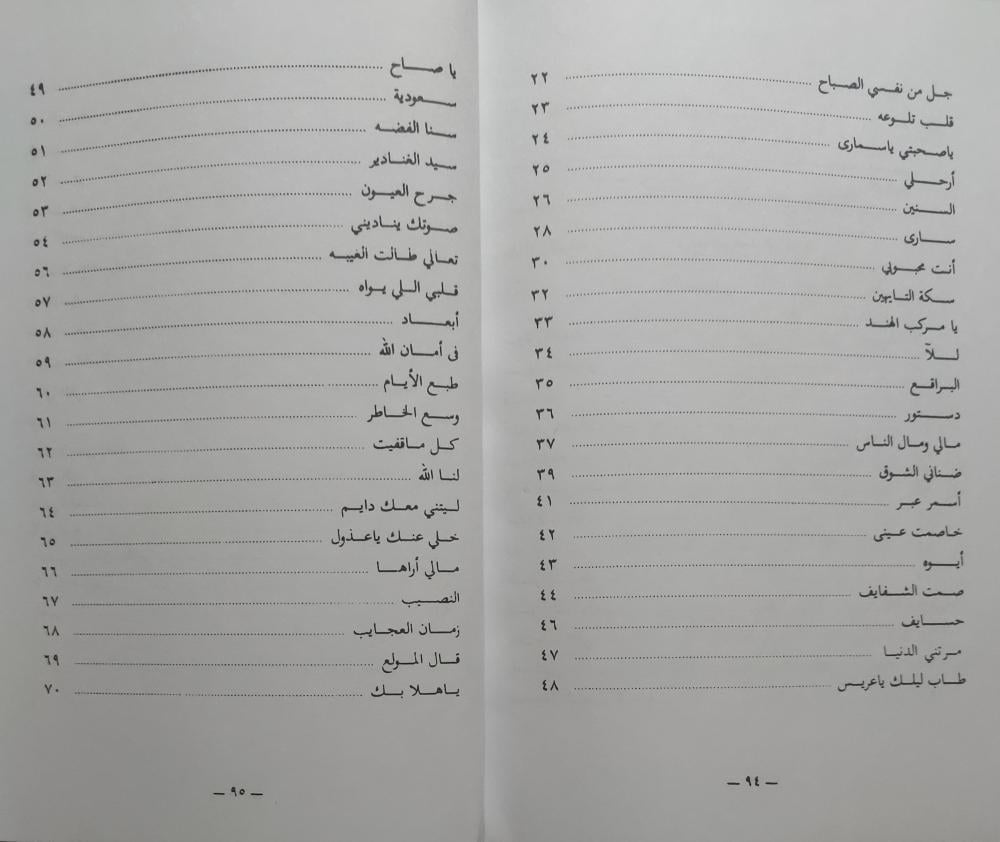 جل من نفسي الصباح ........ ٢٢
قلب تلوعه ........ ٢٣
ياصحبتي ياسمارى ........ ٢٤
أرحلي ........ ٢٥
السنين ........ ٢٦
سارى ........ ٢٨
أنت محبوبي ........ ٣٠
سكة التايهين ........ ٣٢
يا مركب الهند ........ ٣٣
للآ ........ ٣٤
البراقع ........ ٣٥
دستور ........ ٣٦
مالي ومال الناس ........ ٣٧
ضناني الشوق ........ ٣٩
أسمر عبر ........ ٤١
خاصمت عينى ........ ٤٢
أيوه ........ ٤٣
صمت الشفايف ........ ٤٤
حسايف ........ ٤٦
مرتني الدنيا ........ ٤٧
طاب ليلك ياعريس ........ ٤٨
— ٩٤ —
يا صاح ........ ٤٩
سعودية ........ ٥٠
سنا الفضه ........ ٥١
سيد الغنادير ........ ٥٢
جرح العيون ........ ٥٣
صوتك يناديني ........ ٥٤
تعالي طالت الغيبه ........ ٥٦
قلبي اللي يواه ........ ٥٧
أبعاد ........ ٥٨
فى أمان الله ........ ٥٩
طبع الأيام ........ ٦٠
وسع الخاطر ........ ٦١
كل ماقفيت ........ ٦٢
لنا الله ........ ٦٣
ليتني معك دايم ........ ٦٤
خلي عنك ياعذول ........ ٦٥
مالي أراها ........ ٦٦
النصيب ........ ٦٧
زمان العجايب ........ ٦٨
قال المولع ........ ٦٩
ياهلا بك ........ ٧٠
— ٩٥ —